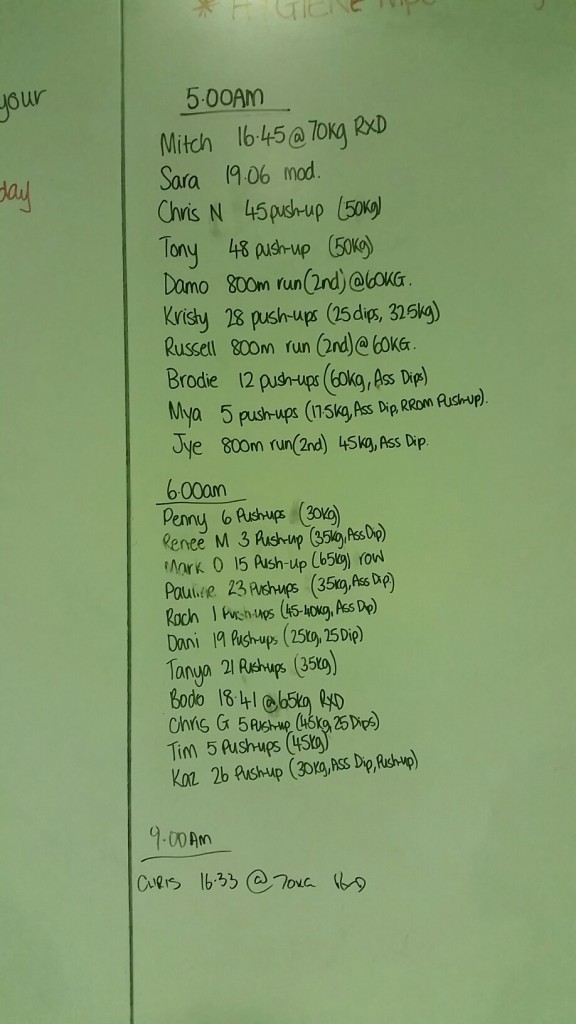 * HYGIENE
your
day
5.00AM
Mitch 16.45 @ 70kg RXD
Sara 19.06 mod.
Chris N 45 push-up (50kg)
Tony 48 push-up (50kg)
Damo 800m run (2nd) @ 60KG.
Kristy 28 push-ups (25 dips, 32.5kg)
Russell 800m run (2nd) @ 60KG.
Brodie 12 push-ups (60kg, Ass Dips)
Mya 5 push-ups (17.5kg, Ass Dip, RROM Push-up).
Jye 800m run (2nd) 45kg, Ass Dip.
6.00am
Penny 6 Push-ups (30kg)
Renee M 3 Push-up (35kg, Ass Dip)
Mark O 15 Push-up (65kg) row
Pauline 23 Push-ups (35kg, Ass Dip)
Rach 1 Push-ups (45-40kg, Ass Dip)
Dani 19 Push-ups (25kg, 25 Dip)
Tanya 21 Push-ups (35kg)
Bodo 18.41 @ 65kg RXD
Chris G 5 Push-up (45kg, 25 Dips)
Tim 5 Push-ups (45kg)
Kaz 26 Push-up (30kg, Ass Dip, Push-up)
9.00AM
CHRIS 16.33 @ 70KG RXD